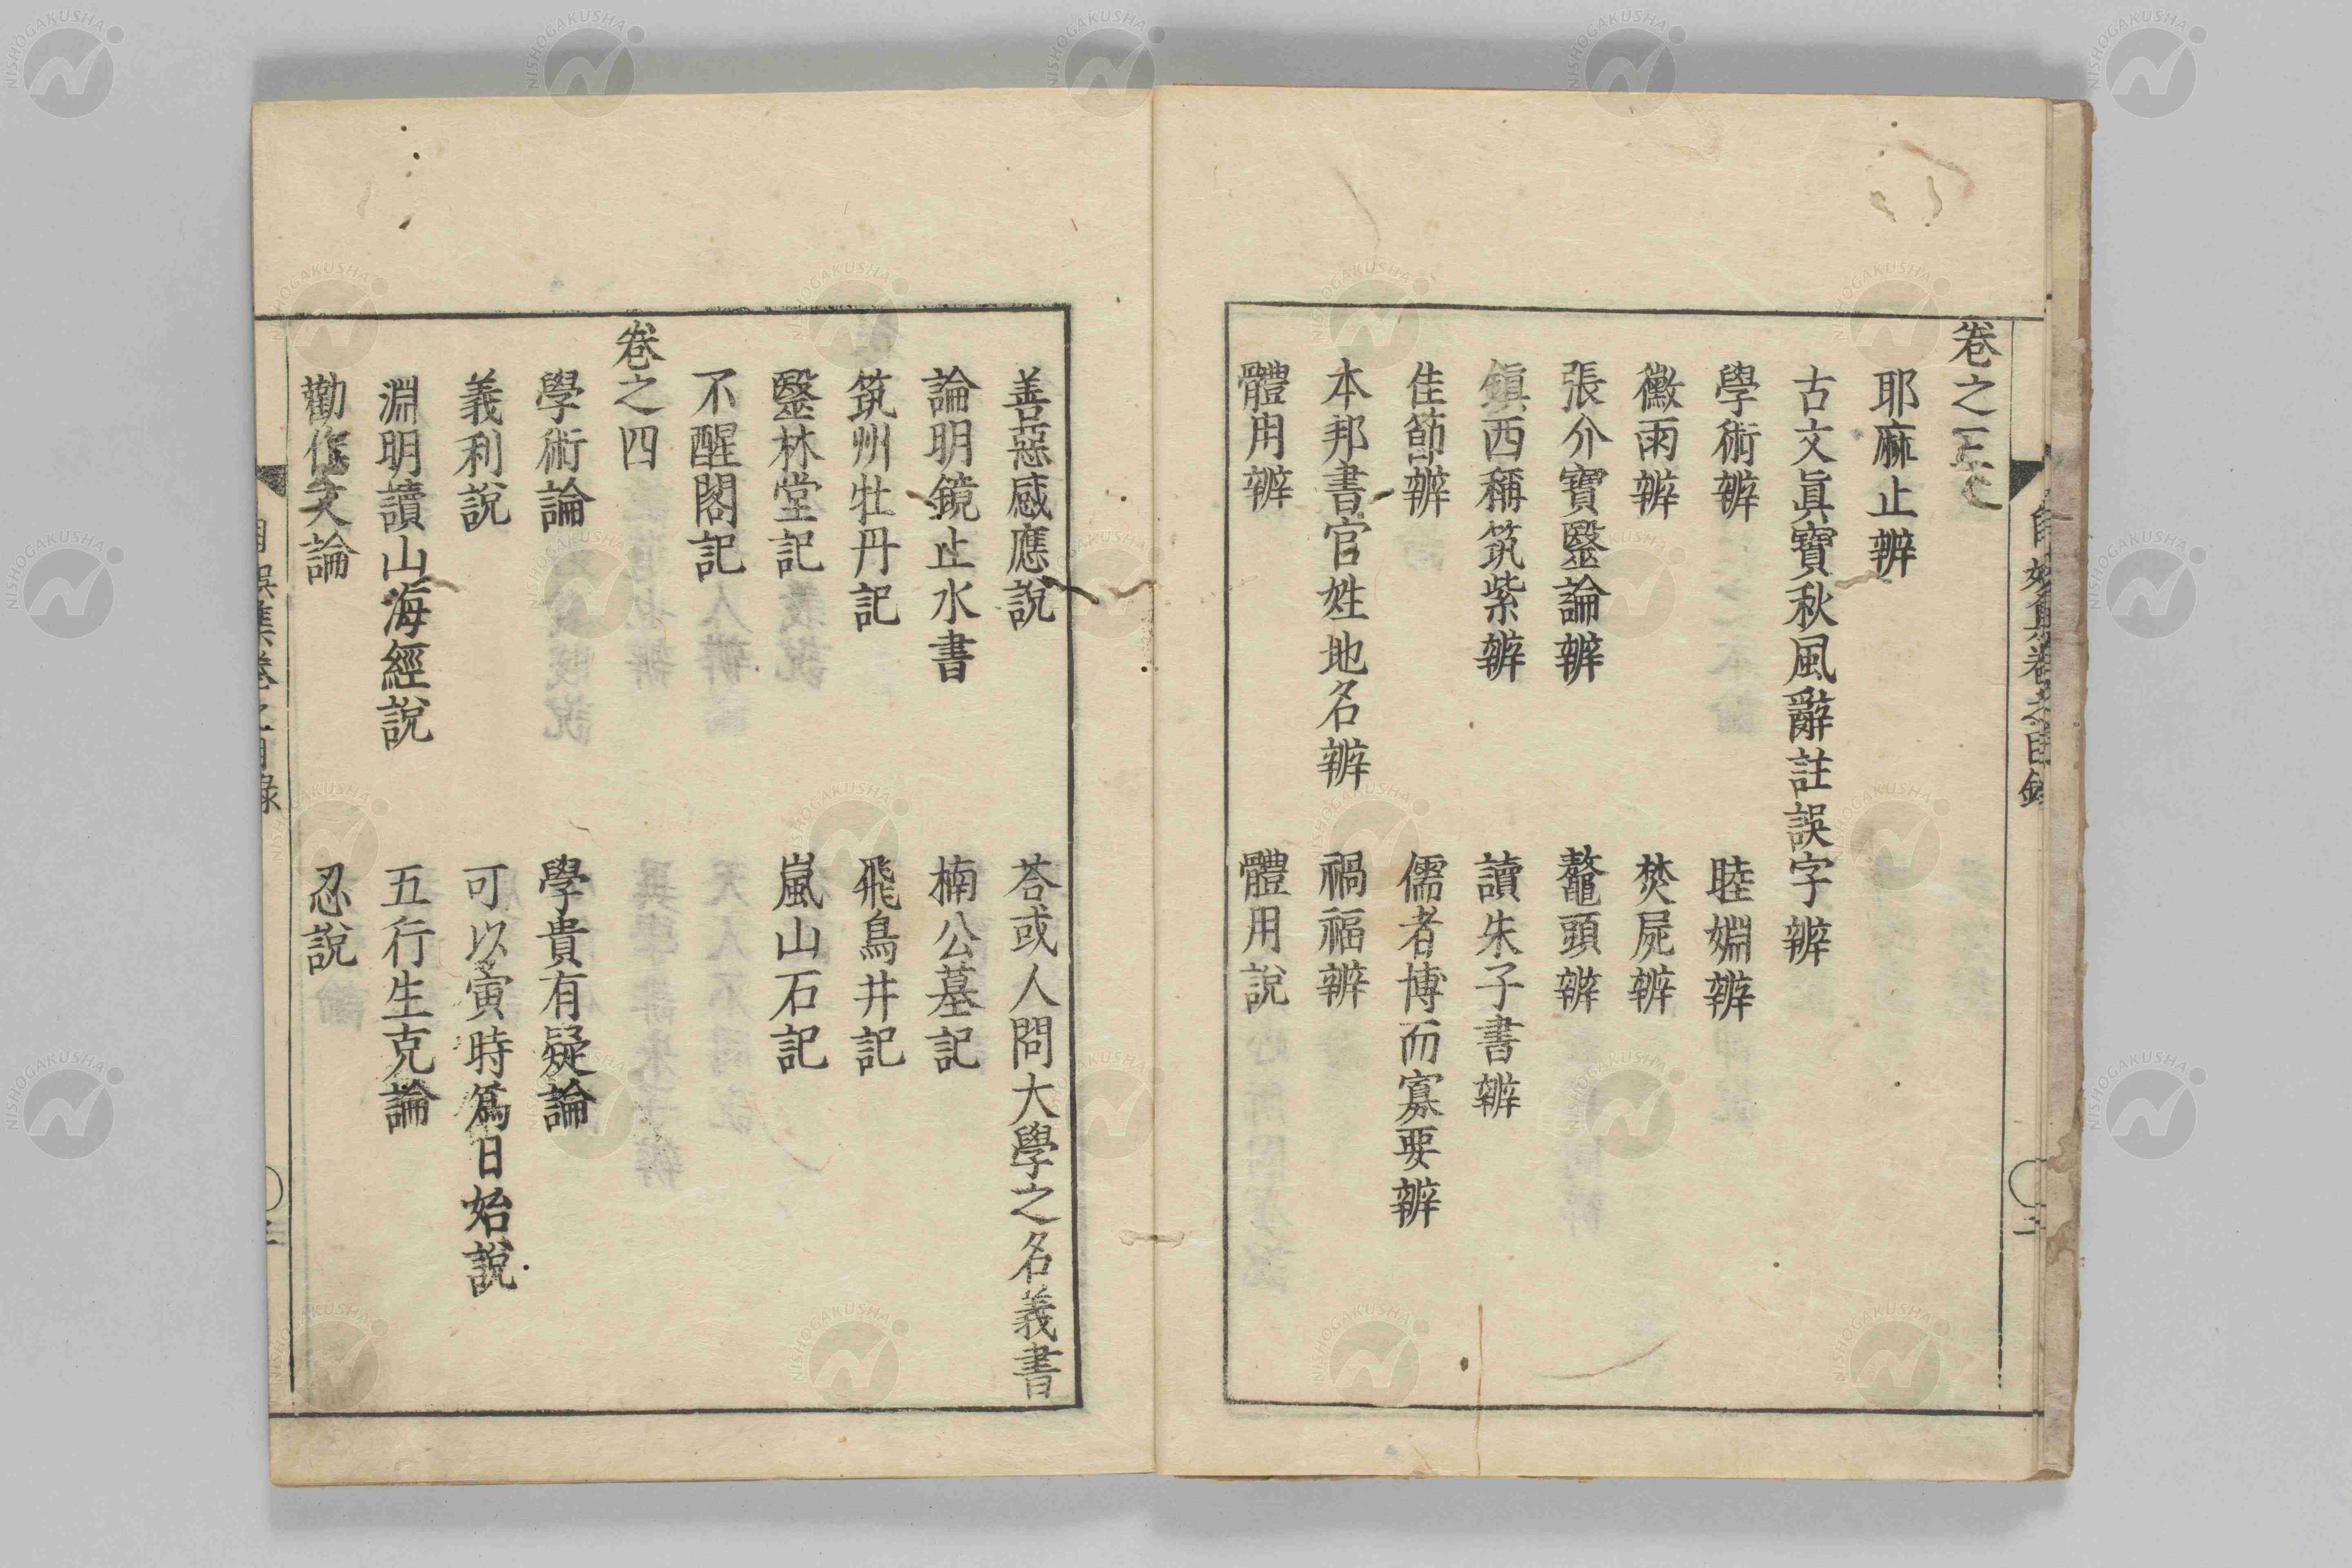 卷之三
耶麻止辨
古文眞寶秋風辭註誤字辨
學術辨　睦婣辨
黴雨辨　焚屍辨
張介賓醫論辨　鼇頭辨
鎭西稱筑紫辨　讀朱子書辨
佳節辨　儒者博而寡要辨
本邦書官姓地名辨　禍福辨
體用辨　體用說
善惡感應說　荅或人問大學之名義書
論明鏡止水書　楠公墓記
筑州牡丹記　飛鳥井記
毉林堂記　嵐山石記
不醒閣記
卷之四
學術論　學貴有疑論
義利說　可以寅時爲日始說
淵明讀山海經說　五行生克論
勸作文論　忍說
自娛集卷之目錄
NISHOGAKUSHA